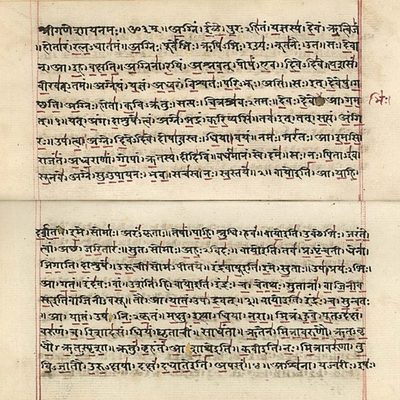 श्रीगणेशायनमः॥ॐ३म्॥ अग्निं। ईळे। पुरःऽहितं। यज्ञस्य। देवं। ऋत्विजं
।होतारं। रत्नऽधातमं॥ अग्निः। पूर्वेभिः। ऋषिऽभिः। ईड्यः। नूतनैः। उत। सः। देवा
न्। आ। इह। वक्षति॥ अग्निना। रयिं। अश्नवत्। पोषं। एव। दिवेऽदिवे। यशसं।
वीरवत्ऽतमं॥ अग्ने। यं। यज्ञं। अध्वरं। विश्वतः। परिऽभूः। असि। सः। इत्। देवेषु। ग
च्छति॥ अग्निः। होता। कविऽक्रतुः। सत्यः। चित्रश्रवःऽतमः॥ देवः। देवेभिः। आ। गम
त्॥१॥ यत्। अंग। दाशुषे। त्वं। अग्ने। भद्रं। करिष्यसि॥ तव। इत्। तत्। सत्यं। अंगि
रः॥ उप। त्वा। अग्ने। दिवेऽदिवे। दोषाऽवस्तः। धिया। वयं॥ नमः। भरंतः। आ। इमसि॥
राजंतं। अध्वराणां। गोपां। ऋतस्य। दीदिविं॥ वर्धमानं। स्वे। दमे॥ सः। नः। पिताऽइव।
सूनवे। अग्ने। सुऽउपायनः। भव॥ सचस्व। नः। स्वस्तये॥२॥ वायो इति। आ। याहि।
दर्शत। इमे। सोमाः। अरंऽकृताः॥ तेषां। पाहि। श्रुधि। हवं॥ वायो इति। उक्थेभिः। जरंते।
त्वां। अच्छ। जरितारः॥ सुतऽसोमाः। अहःऽविदः॥ वायो इति। तव। प्रऽपृंचती। धेना।
जिगाति। दाशुषे॥ उरूची। सोमऽपीतये॥ इंद्रवायू इति। इमे। सुताः। उप। प्रयःऽभिः।
आ। गतं॥ इंदवः। वां। उशंति। हि॥ वायो इति। इंद्रः। च। चेतथः। सुतानां। वाजिनीव
सू इति वाजिनीऽवसू॥ तौ। आ। यातं। उप। द्रवत्॥३॥ वायो इति। इंद्रः। च। सुन्वतः
॥आ। यातं। उप। निःऽकृतं॥ मक्षु। इत्था। धिया। नरा॥ मित्रं। हुवे। पूतऽदक्षं।
वरुणं। च। रिशादसं॥ धियं। घृताचीं। साधंता॥ ऋतेन। मित्रावरुणौ। ऋतऽवृ
धौ। ऋतऽस्पृशा॥ क्रतुं। बृहंतं। आशाथे इति॥ कवी इति। नः। मित्रावरुणा। तु
विऽजातौ। उरुऽक्षया॥ दक्षं। दधाते इति। अपसं॥४॥ अश्विना। यज्वरीः। इषः।